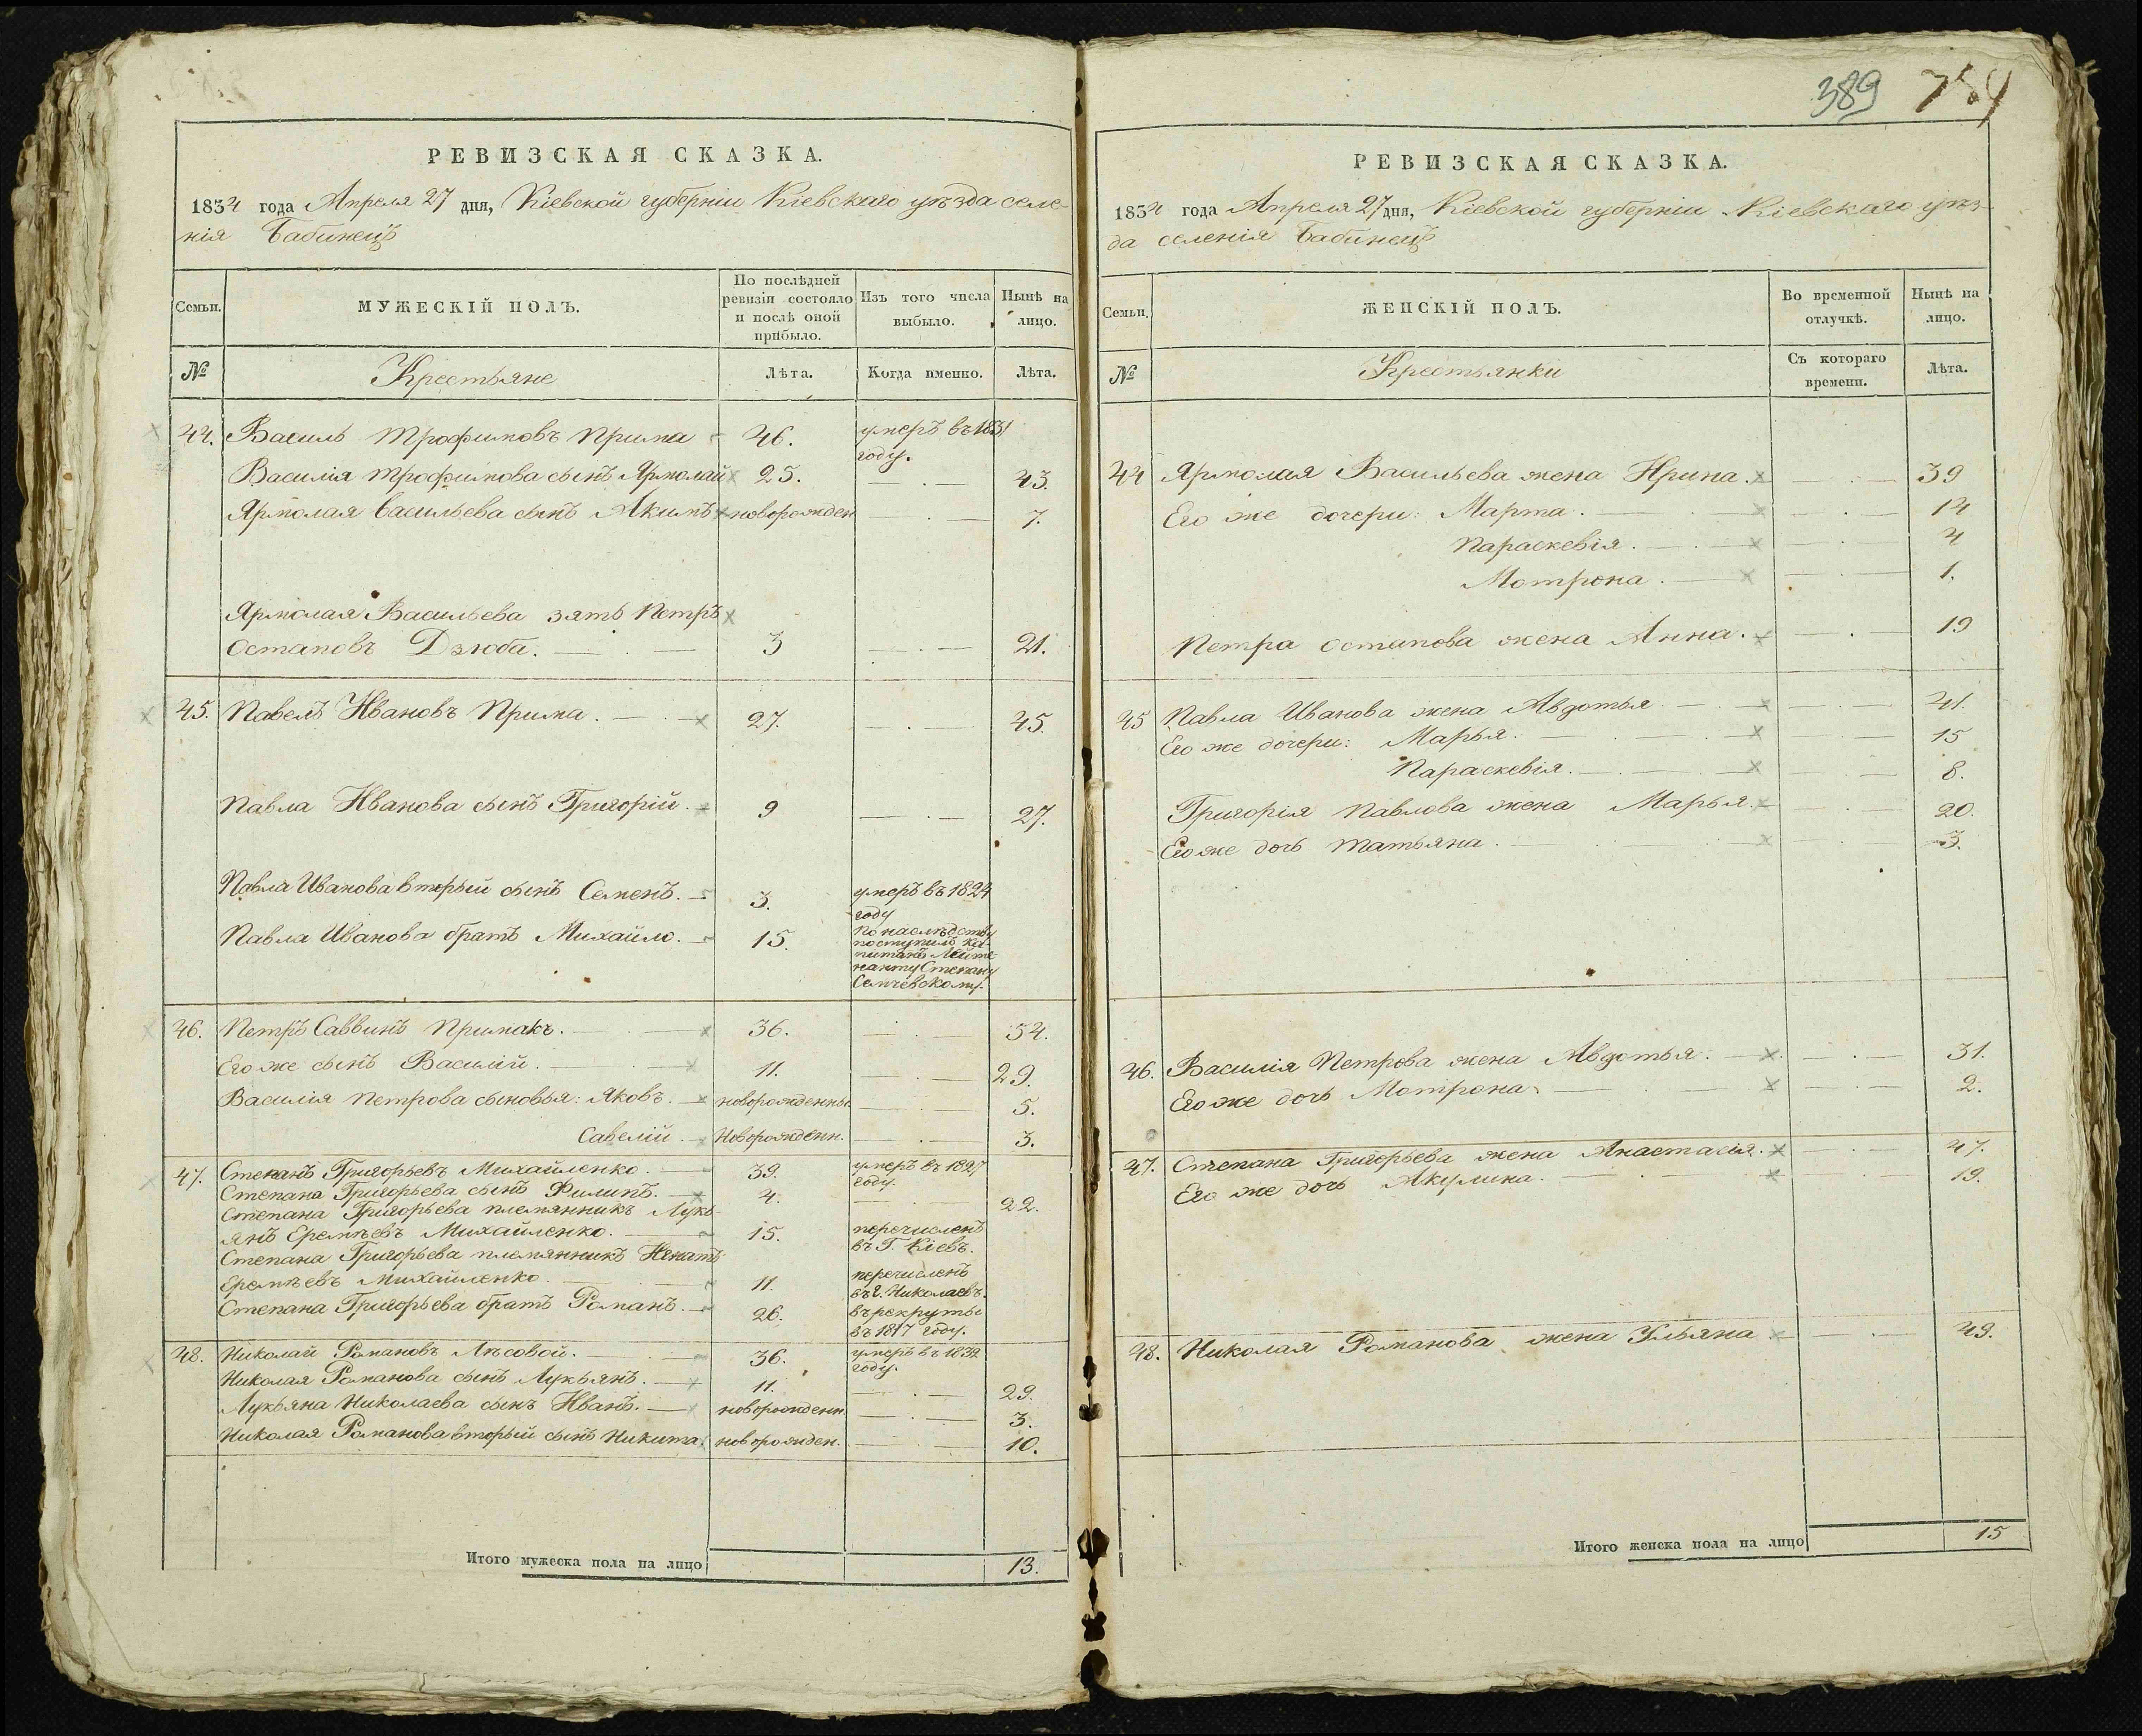 РЕВИЗСКАЯ СКАЗКА.
1834 года Апреля 27 дня, Кіевской губерніи Кіевскаго уѣзда селе-
нія Бабинецъ
Семьи. МУЖЕСКІЙ ПОЛЪ. По послѣдней ревизіи состояло и послѣ оной прибыло. Изъ того числа выбыло. Нынѣ на лицо.
№ Крестьяне Лѣта. Когда именно. Лѣта.
44. Василь Трофимовъ Прима 46. умеръ въ 1831 году.
Василія Трофимова сынъ Ярмолай 25. 43.
Ярмолая Васильева сынъ Акимъ новорожден 7.
Ярмолая Васильева зять Петръ
Остаповъ Дзюба. 3 21.
45. Павелъ Ивановъ Прима. 27. 45.
Павла Иванова сынъ Григорій. 9 27.
Павла Иванова вторый сынъ Семенъ. 3. умеръ въ 1824 году
Павла Иванова братъ Михайло. 15. По наслѣдству поступилъ Капитанъ Лейтенанту Степану
46. Петръ Саввинъ Примакъ. 36. 54.
Его же сынъ Василій. 11. 29.
Василія Петрова сыновья: Яковъ. новорожденны 5.
Савелій. Новорожденн. 3.
47. Степанъ Григорьевъ Михайленко. 39. умеръ въ 1827 году.
Степана Григорьева сынъ Филипъ. 4. 22.
Степана Григорьева племянникъ Лукь-
янъ Еремѣевъ Михайленко. 15. перечисленъ въ Г. Кіевъ.
Степана Григорьева племянникъ Игнатъ
Еремѣевъ Михайленко. 11. перечисленъ въ г. Николаевъ.
Степана Григорьева братъ Романъ. 26. въ рекруты въ 1817 году.
48. Николай Романовъ Лѣсовой. 36. умеръ въ 1832 году.
Николая Романова сынъ Лукьянъ. 11. 29.
Лукьяна Николаева сынъ Иванъ. новорожденн 3.
Николая Романова вторый сынъ Никита новорожден. 10.
Итого мужеска пола на лицо 13.
389 784
РЕВИЗСКАЯ СКАЗКА.
1834 года Апреля 27 дня, Кіевской губерніи Кіевскаго уѣз-
да селенія Бабинецъ
Семьи. ЖЕНСКІЙ ПОЛЪ. Во временной отлучкѣ. Нынѣ на лицо.
№ Крестьянки Съ котораго времени. Лѣта.
44 Ярмолая Васильева жена Ирина. 39
Его же дочери: Марта. 14
Параскевія. 4
Мотрона. 1.
Петра Остапова жена Анна. 19
45 Павла Иванова жена Авдотья 41.
Его же дочери: Марья. 15
Параскевія. 8.
Григорія Павлова жена Марья. 20.
Его же дочь Татьяна. 3.
46. Василія Петрова жена Авдотья. 31.
Его же дочь Мотрона. 2.
47. Степана Григорьева жена Анастасія. 47.
Его же дочь Акулина. 19.
48. Николая Романова жена Ульяна 49.
Итого женска пола на лицо 15